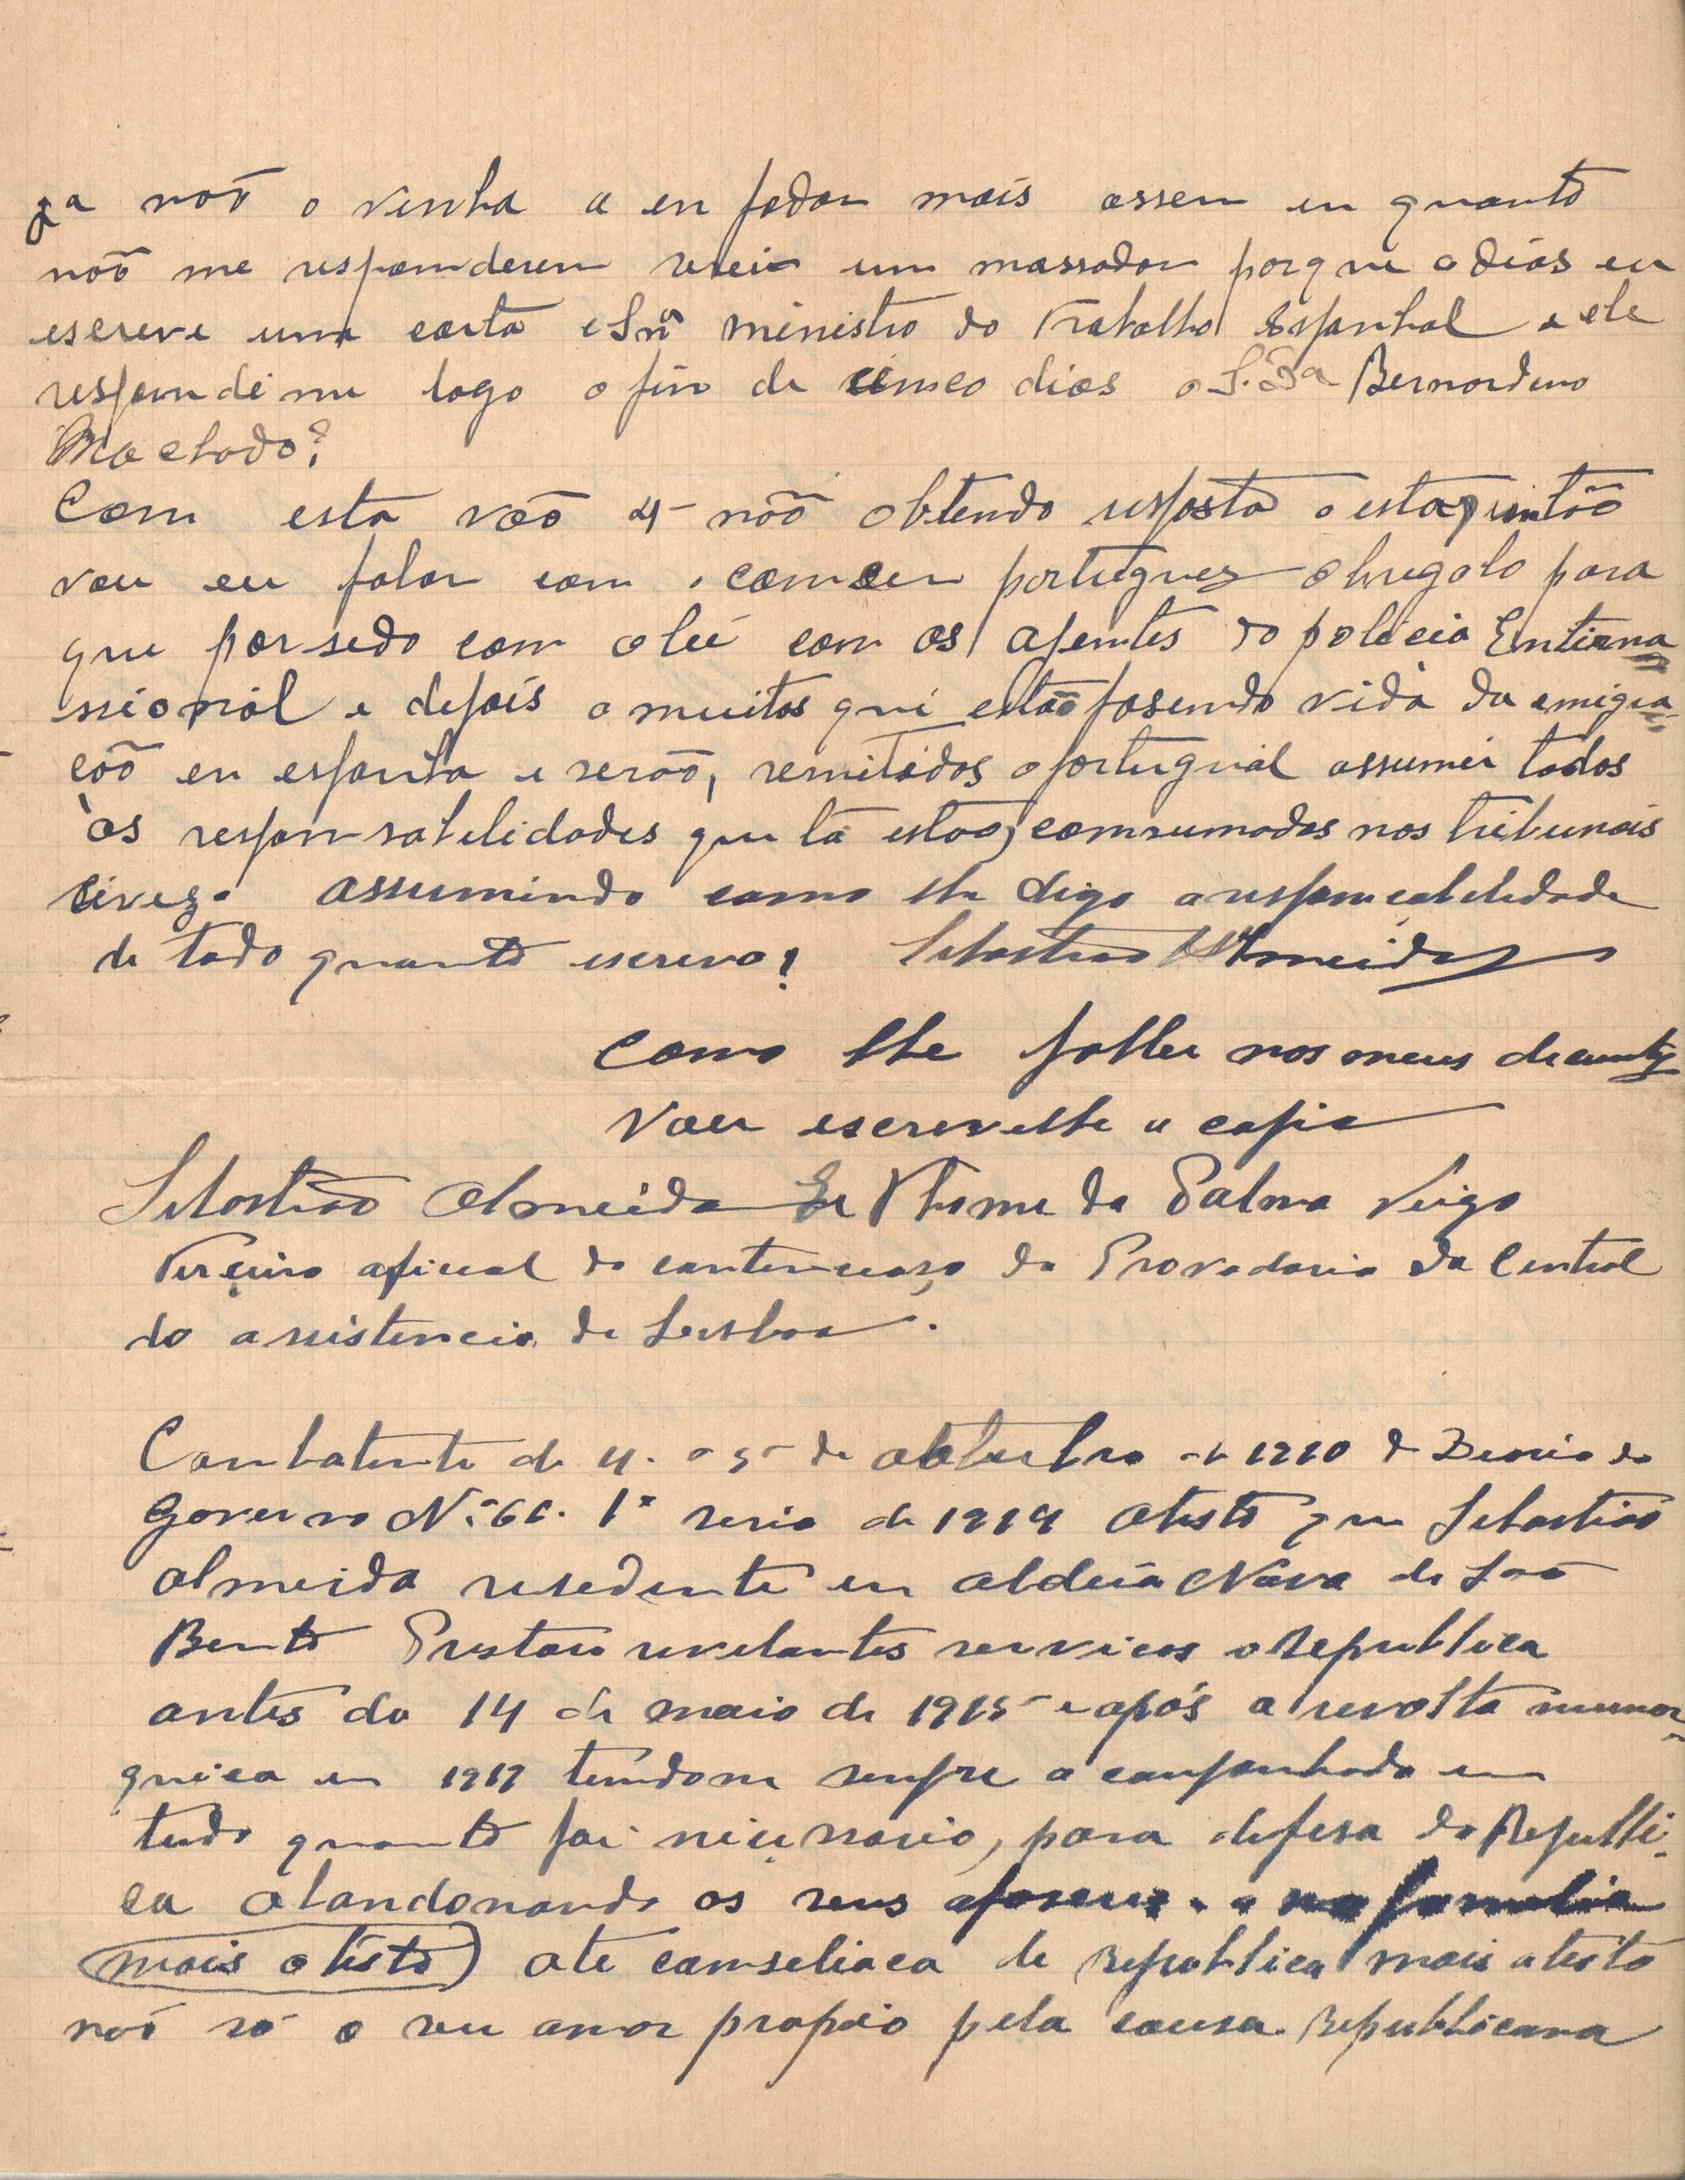 ja não o vinha a en fadar mais assen en quanto
não me responderen serei um massador porque a dias eu
escreve uma carta o Snr ministro do trabalho Espanhol e ele
respondeime logo o fin de cinco dias o Bernardino
Machado?
Com esta vão 4 não obtendo resposta a esta então
vou eu falar com o portuguez obrigalo para
que com os ajentes da polecia Entierna
ssional e depois a muitos que estão fasendo vida da emigra
cão en espanha e serão, remitidos a portugual assumir todas
as responsabelidades que lá estão comsumadas nos tribunais
civez. assumindo como lhe digo a responçabelidade
de tado quanto escrevo! Sebastiao Almeida
Como lhe fallei nos meus
Vou escrevelhe a copia
Sebastião Almeida Thome da Palma Veigo
Terceiro aficial do da Provedoria da Central
da assistencia de Lesboa.
Combatente de 4. a 5 de oktubro de 1910 Deario do
Governo Nº 66. 1ª seria de 1919 Atesto que Sebastião
almeida resedente en aldeia Nova de São
Bento Prestou relevantes servicos a Republica
antes do 14 de maio de 1915 e após a revolta munar
quica en 1919 tendome senpre a canpanhado en
tudo quanto foi nicesario, para defesa da Republi
ca abandonando os seus a familia
mais atesto) ate de Republica mais atesto
não só o seu amor propeio pela causa Republicana